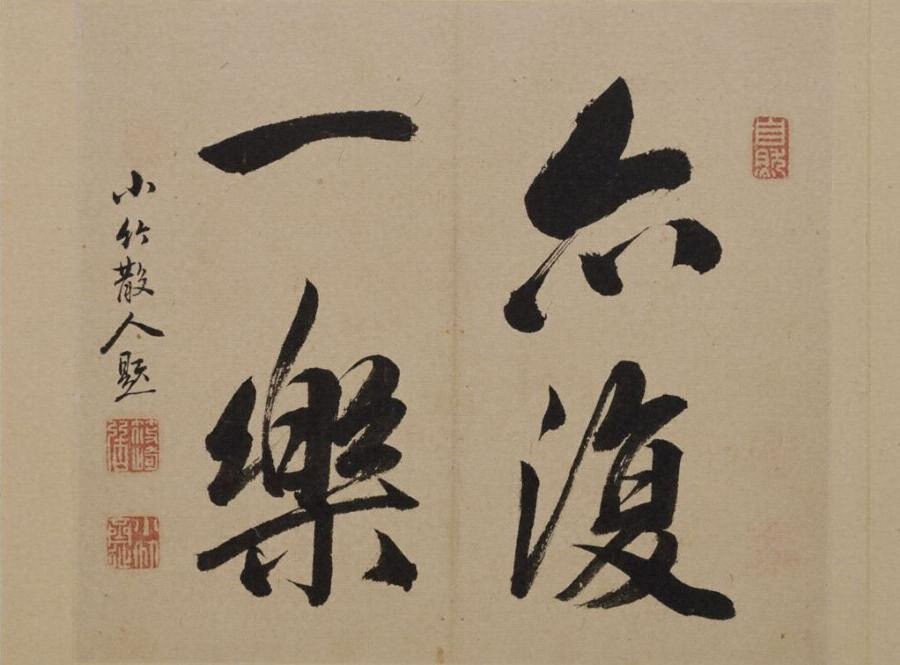 亦復
一樂
小竹散人題
自然